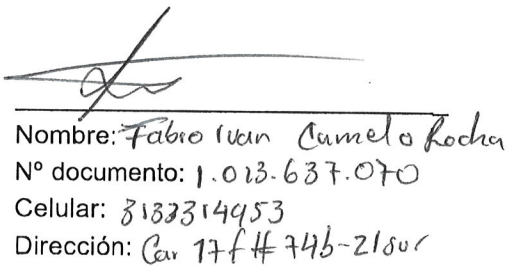 Nombre: Fabio Ivan Camelo Rocha
Nº documento: 1.013.637.070
Celular: 3133314953
Dirección: Car 17f # 74b-21sur